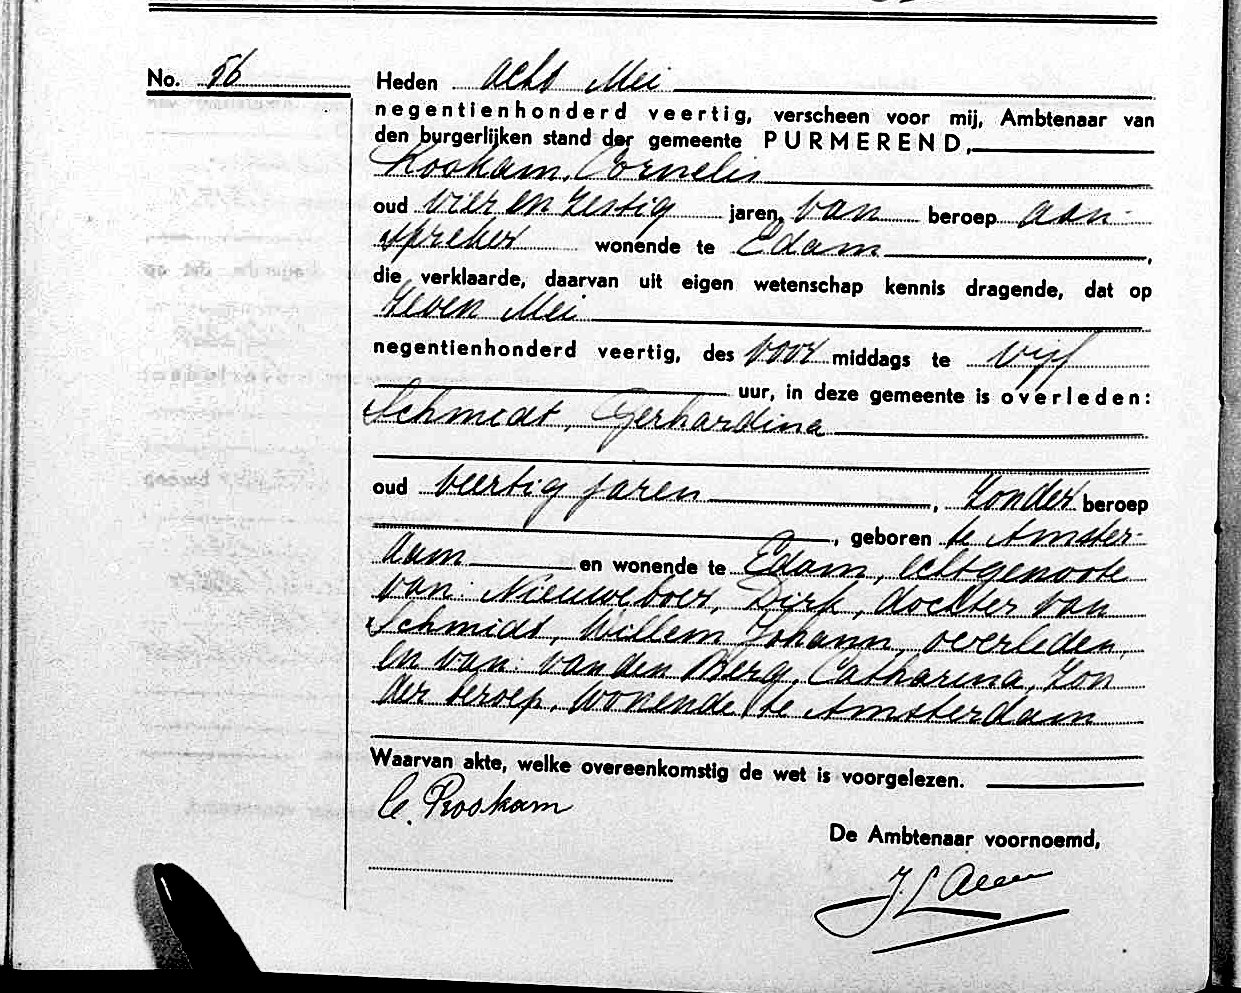 No. 56
Heden acht Mei
negentienhonderd veertig, verscheen voor mij, Ambtenaar van
den burgerlijken stand der gemeente PURMEREND,
Roskam, Cornelis
oud vier en zestig jaren, van beroep aan-
spreker wonende te Edam,
die verklaarde, daarvan uit eigen wetenschap kennis dragende, dat op
zeven Mei
negentienhonderd veertig, des voor middags te vijf
uur, in deze gemeente is overleden:
Schmidt, Gerhardina
oud veertig jaren, zonder beroep
, geboren te Amster-
dam en wonende te Edam, echtgenoote
van: Nieuweboer, Dirk, dochter van
Schmidt, Willem Johann, overleden,
en van: van den Berg, Catharina, zon
der beroep, wonende te Amsterdam
Waarvan akte, welke overeenkomstig de wet is voorgelezen.
C. Roskam
De Ambtenaar voornoemd,